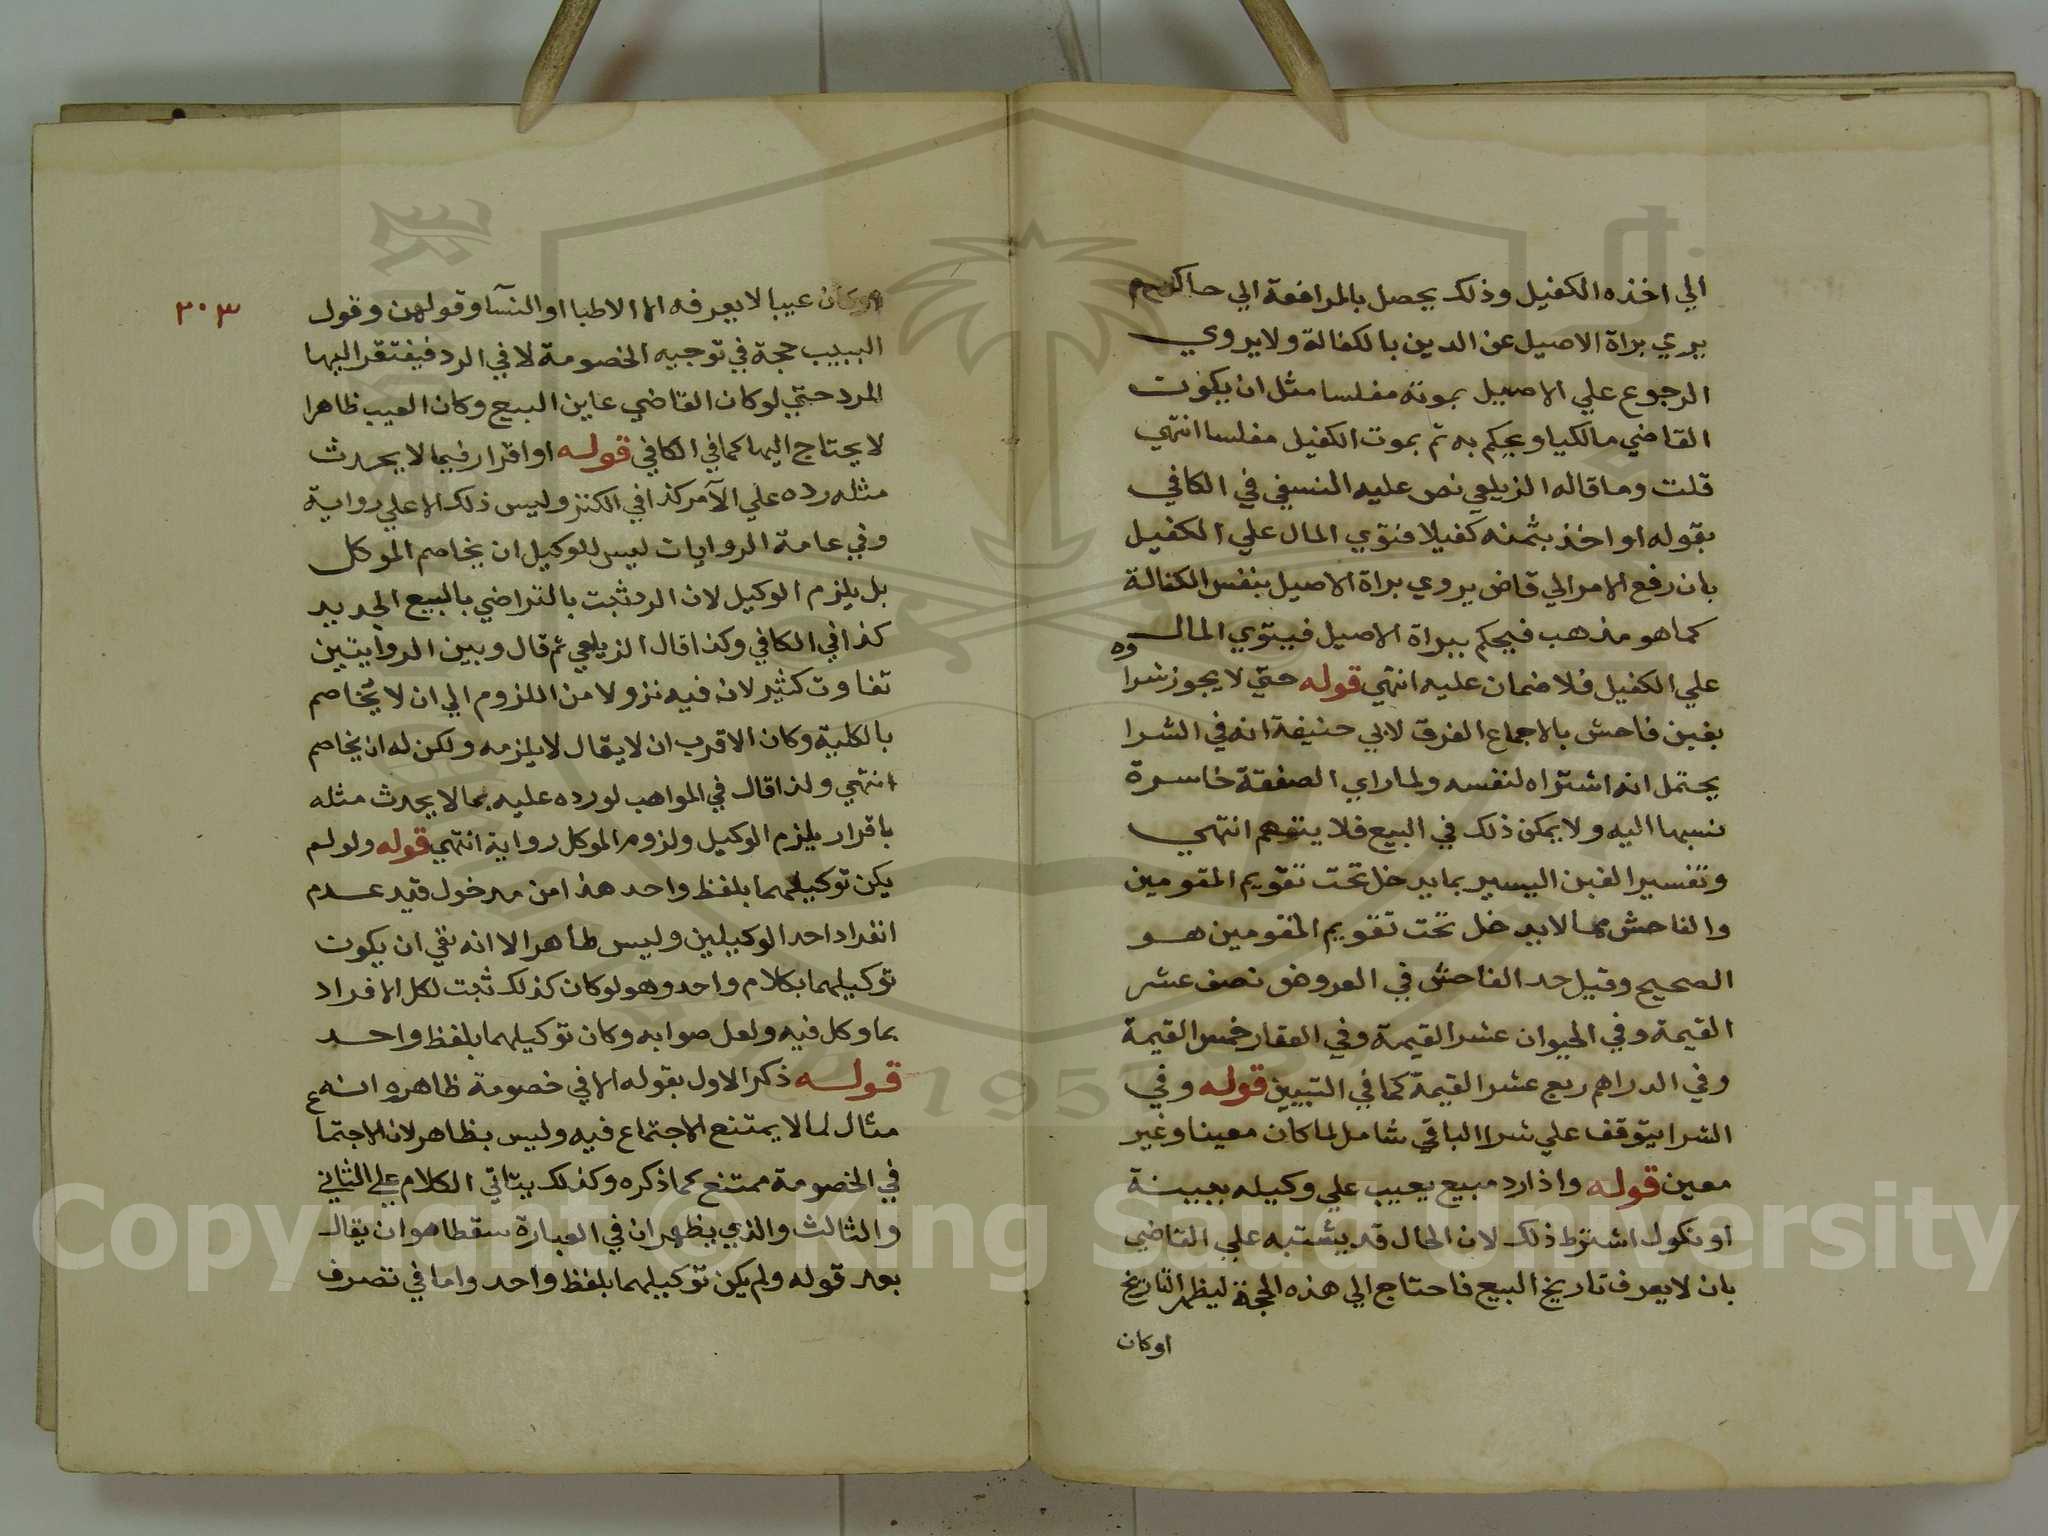 الي اخذه الكفيل وذلك يحصل بالمرافعة الي حاكم
يري براة الاصيل عن الدين بالكفالة ولا يروي
الرجوع علي الاصيل بموته مفلسا مثل ان يكون
القاضي مالكيا ويحكم به ثم بموت الكفيل مفلسا انتهي
قلت وما قاله الزيلعي نص عليه النسفي في الكافي
بقوله او اخذ بثمنه كفيلا فتوي المال علي الكفيل
بان رفع الامر الي قاض يروي براة الاصيل بنفس الكفالة
كما هو مذهب فيحكم ببراة الاصيل فيتوي المال
علي الكفيل فلا ضمان عليه انتهي قوله حتي لا يجوز شراوه
بغبن فاحش بالاجماع الفرق لابي حنيفة انه في الشرا
يحتمل انه اشتراه لنفسه ولما راي الصفقة خاسرة
نسبها اليه ولا يمكن ذلك في البيع فلا يتوهم انتهي
وتفسير الغبن اليسير بما يدخل تحت تقويم المقومين
والفاحش مما لا يدخل تحت تقويم المقومين هو
الصحيح وقيل حد الفاحش في العروض نصف عشر
القيمة وفي الحيوان عشر القيمة وفي العقار خمس القيمة
وفي الدراهم ربع عشر القيمة كما في التبيين قوله وفي
الشرا يتوقف علي شرا الباقي شامل لما كان معينا وغير
معين قوله واذا رد مبيع بعيب علي وكيله ببينة
او نكول اشترط ذلك لان الحال قد يشتبه علي القاضي
بان لا يعرف تاريخ البيع فاحتاج الي هذه الحجة ليظهر التاريخ
اوكان
٢٠٣
اوكان عيبا لا يعرفه الا الاطبا او النسآ وقولهن وقول
الببيب حجة في توجيه الخصومة لا في الرد فيفتقر اليها
للرد حتي لو كان القاضي عاين البيع وكان العيب ظاهرا
لا يحتاج اليها كما في الكافي قوله او اقرار فيما لا يحدث
مثله رده علي الآمر كذا في الكنز وليس ذلك الا علي رواية
وفي عامة الروايات ليس للوكيل ان يخاصم الموكل
بل يلزم الوكيل لان الرد ثبت بالتراضي بالبيع الجديد
كذا في الكافي وكذا قال الزيلعي ثم قال وبين الروايتين
تفاوت كثير لان فيه نزولا من اللزوم الي ان لا يخاصم
بالكلية وكان الاقرب ان لا يقال لا يلزمه ولكن له ان يخاصم
انتهي ولذا قال في المواهب لو رده عليه بما لا يحدث مثله
باقرار يلزم الوكيل ولزوم الموكل رواية انتهي قوله ولو لم
يكن توكيلهما بلفظ واحد هذا من مدخول قيد عدم
انفراد احد الوكيلين وليس ظاهرا لانه نفي ان يكون
توكيلهما بكلام واحد وهو لو كان كذلك ثبت لكل الافراد
بما وكل فيه ولعل صوابه وكان توكيلهما بلفظ واحد
قوله ذكر الاول بقوله الا في خصومة ظاهره انه
مثال لما لا يمتنع الاجتماع فيه وليس بظاهر لان الاجتماع
في الخصومة ممتنع كما ذكره وكذلك يتاتي الكلام علي الثاني
والثالث والذي يظهر ان في العبارة سقطا هو ان يقال
بعد قوله ولم يكن توكيلهما بلفظ واحد واما في تصرف
Copyright © King Saud University
1957